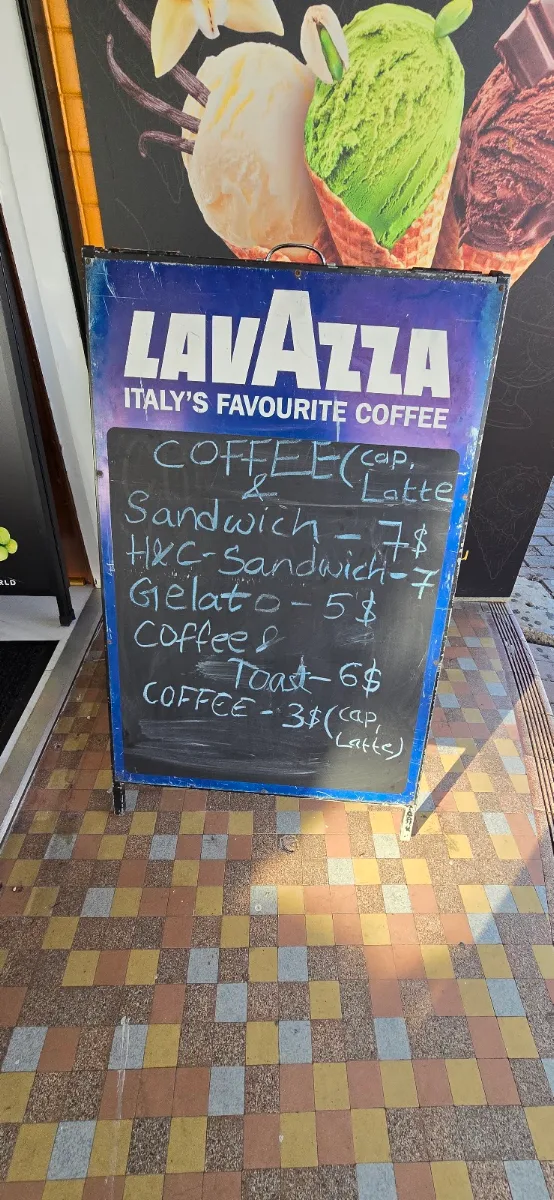 LAVAZZA
ITALY'S FAVOURITE COFFEE
COFFEE (cap,
& Latte
Sandwich - 7$
H&C-Sandwich-7
Gelato - 5$
Coffee &
Toast- 6$
COFFEE - 3$ (cap,
Latte)
RLD